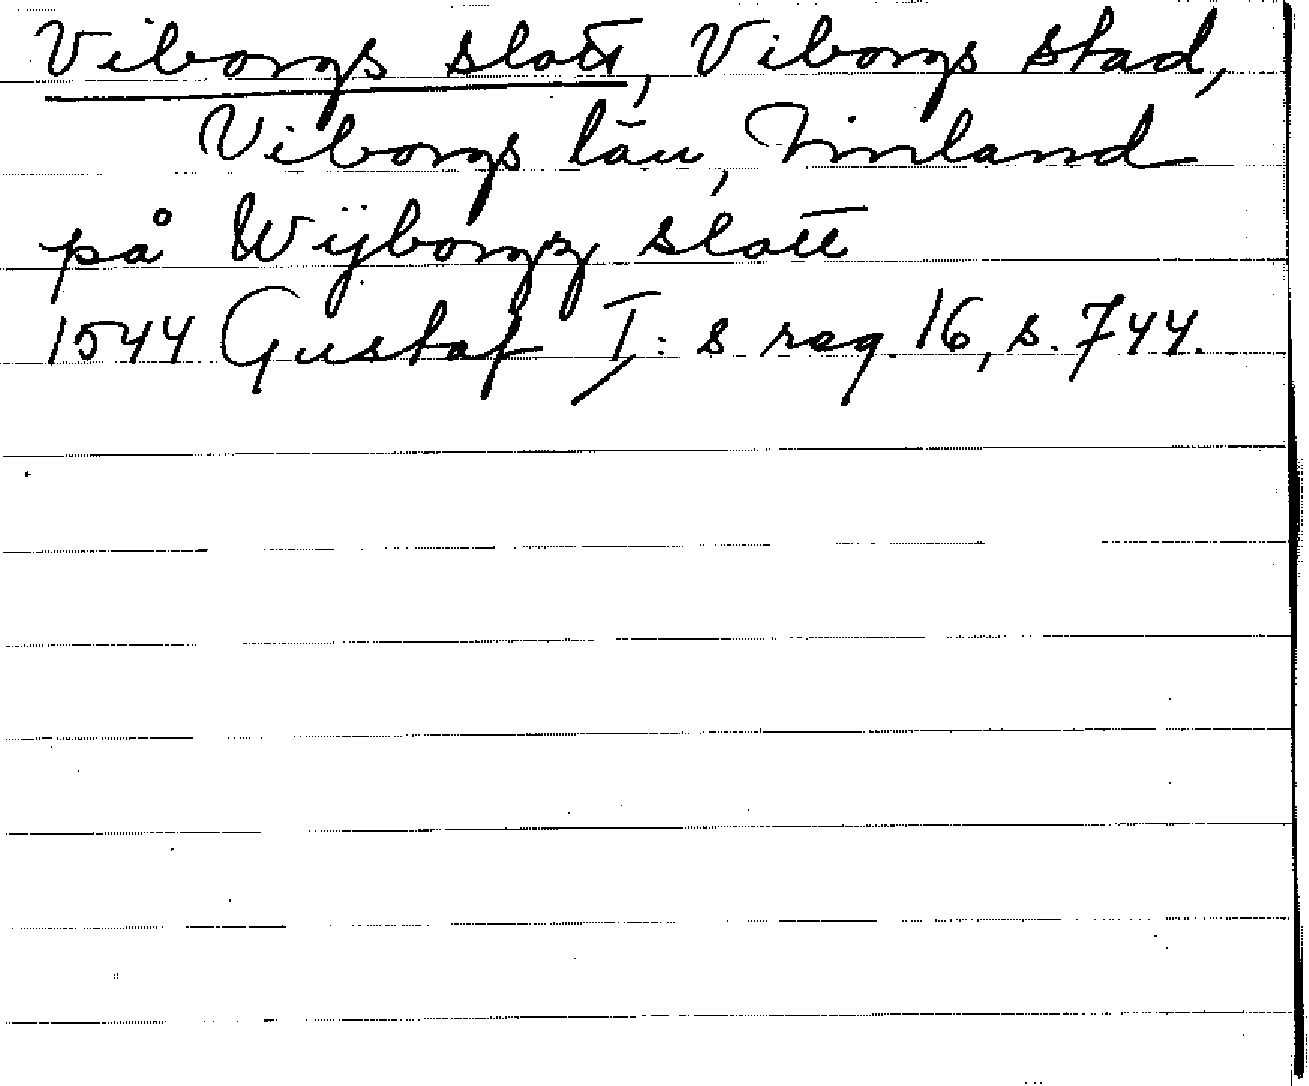 Viborgs slott, Viborgs stad,
Viborgs län, Finland
på Wijborgz slott
1544 Gustaf I:s reg. 16, s. 744.